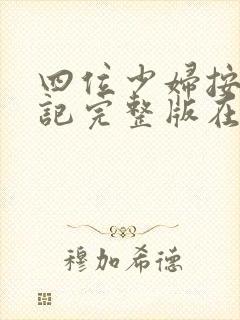 四位少婦按
記完整版在
穆加希德